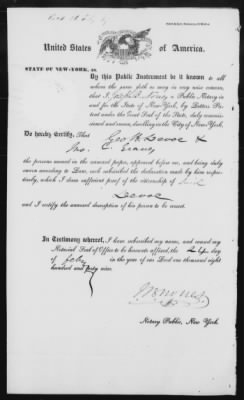 United States of America.
STATE OF NEW-YORK, ss.
By this Public Instrument be it known to all
whom the same doth or may in any wise concern,
that I, a Public Notary in
and for the State of New-York, by Letters Patent
under the Great Seal of the State, duly commissioned
and sworn, dwelling in the City of New-York,
Do hereby Certify, That Geo H &
Jno. C.
the persons named in the annexed paper, appeared before me, and being duly
sworn according to Law, each subscribed the declaration made by him respectively,
which I deem sufficient proof of the citizenship of said
and I certify the annexed description of his person to be correct.
In Testimony whereof, I have subscribed my name, and caused my
Notarial Seal of Office to be hereunto affixed, the
of in the year of our Lord one thousand eight
hundred and forty nine.
Notary Public, New York.